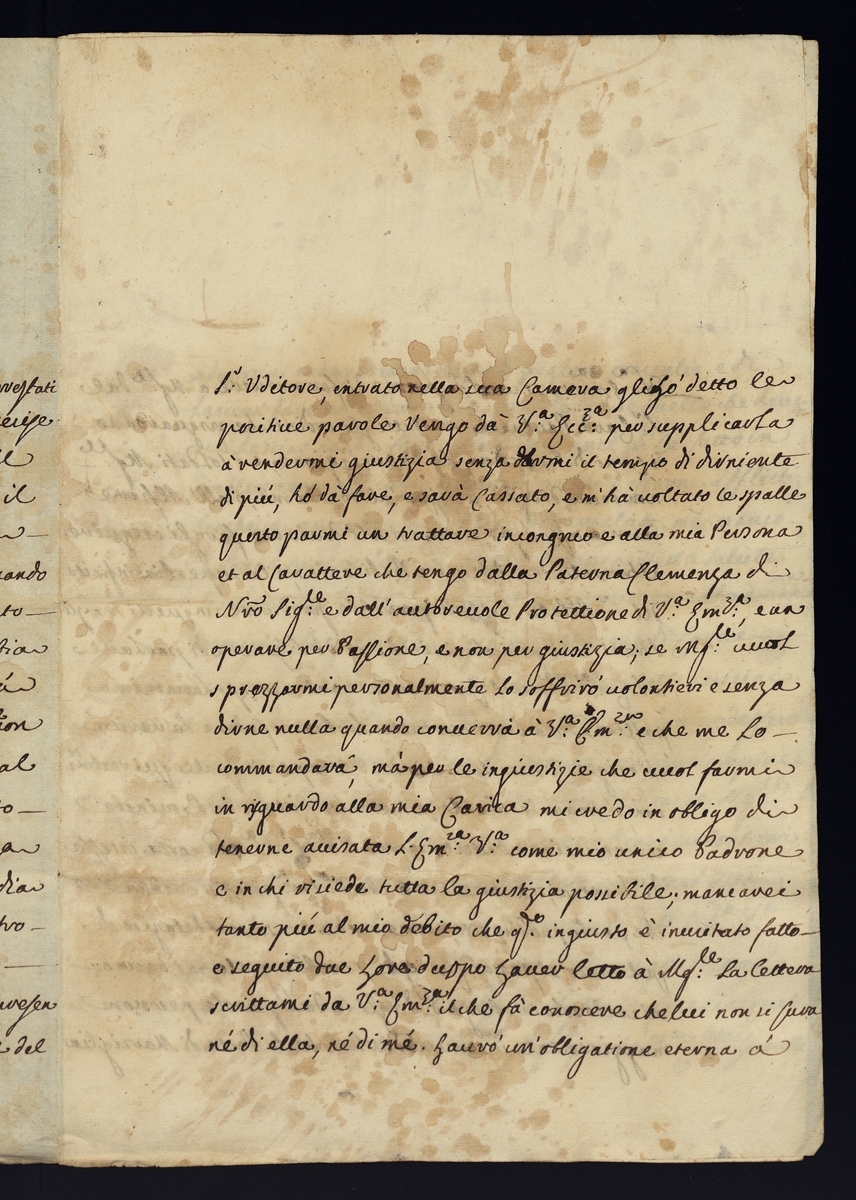 S.r Uditore, entrato nella sua Camera gli hó detto le
positive parole Vengo dà V.a Ecc.za per supplicarla
à rendermi giustizia senza darmi il tempo di dir niente
di piú, hó dà fare, e sarà Cassato, e m'hà voltato le spalle
questo parmi un trattare incongruo e alla mia Persona
et al Carattere che tengo dalla Paterna Clemenza di
Nrõ Sig.re e dall'autorevole Protettione di V.a Em.za, e un
operare per Passione, e non per giustizia; se Mg.re vuol
sprezzarmi personalmente lo soffriró volontieri e senza
dirne nulla quando converrà à V.a Em.za e che me lo
commandarà, mà per le ingiustizie che vuol farmi
in riguardo alla mia Carica mi credo in obligo di
tenerne avisata l'Em.za V.a come mio unico Padrone
e in chi risiede tutta la giustizia possibile; mancarei
tanto piú al mio débito che q.to ingiusto è inusitato fatto
e seguito due hore duppo haver letto à Mg.re la lettera
scrittami da V.a Em.za il che fà conoscere che lui non si cura
né di ella, né di mé. Havró un'obligatione eterna á
restati
il
ando
to
tia
ion
al
to
dia
tro
resen
del